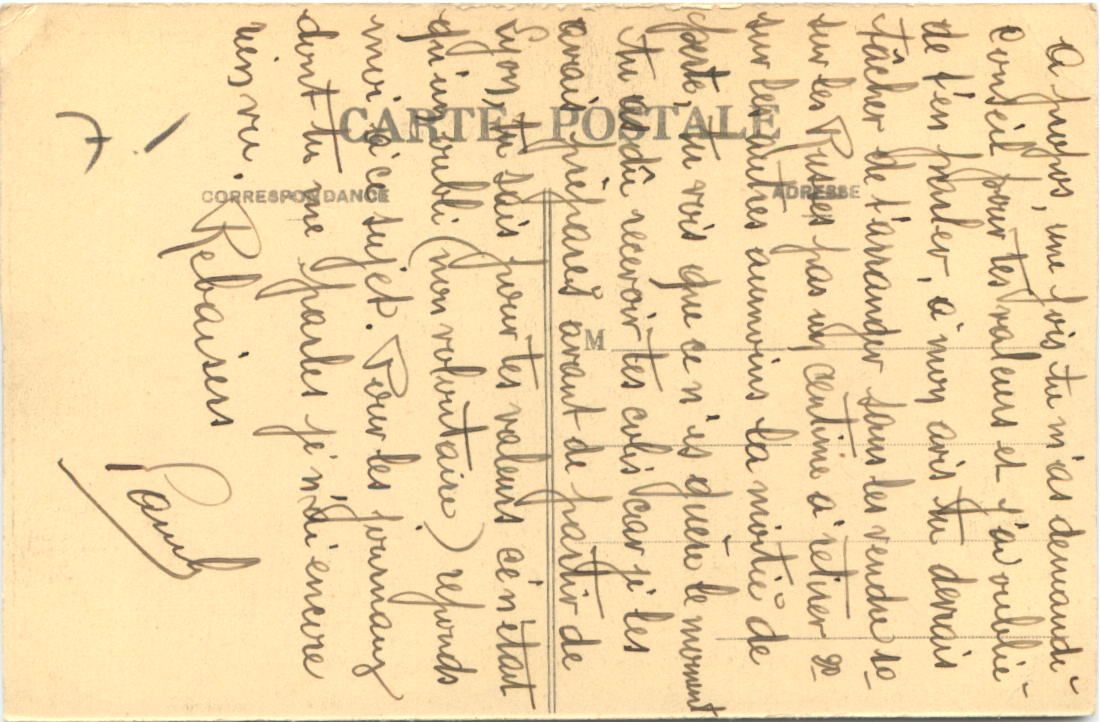 CARTE POSTALE
CORRESPONDANCE
ADRESSE
M
A propos, une fois tu m'as demandé
conseil pour tes valeurs et j'ai oublié
de t'en parler, à mon avis tu devrais
tâcher de t'arranger sans les vendre 1º
sur les Russes pas un centime à retirer 2º
sur les autres au moins la moitié de
perte, tu vois que ce n'es guère le moment
tu as dû recevoir tes colis car je les
avais préparés avant de partir de
Lyon, tu sais pour tes valeurs ce n'était
qu'un oubli (non volontaire) reponds
moi à ce sujet. Pour les journaux
dont tu me parles je n'ai encore
rien vu.
Rebaisers
Paul
7